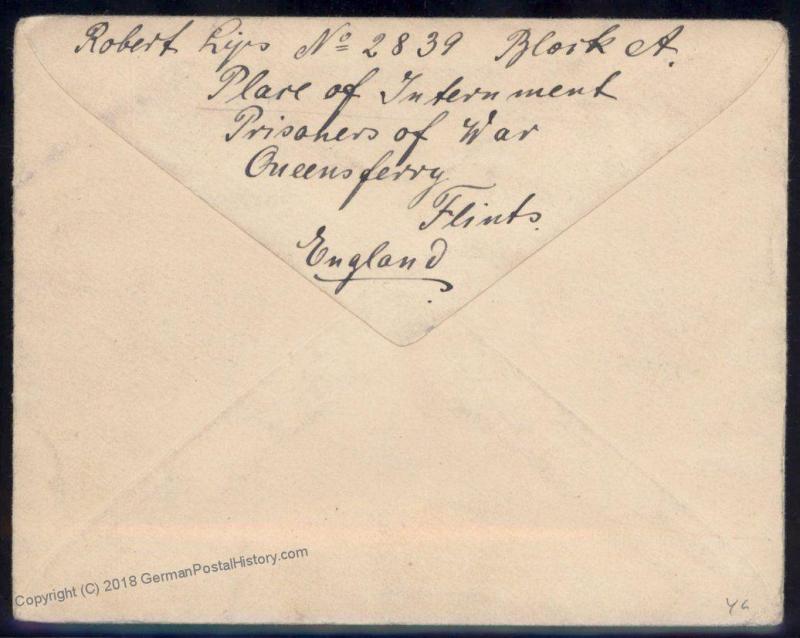 Robert Lips Nº 2839 Block A.
Place of Internment
Prisoners of War
Queensferry
Flints.
England
Copyright (C) 2018 GermanPostalHistory.com